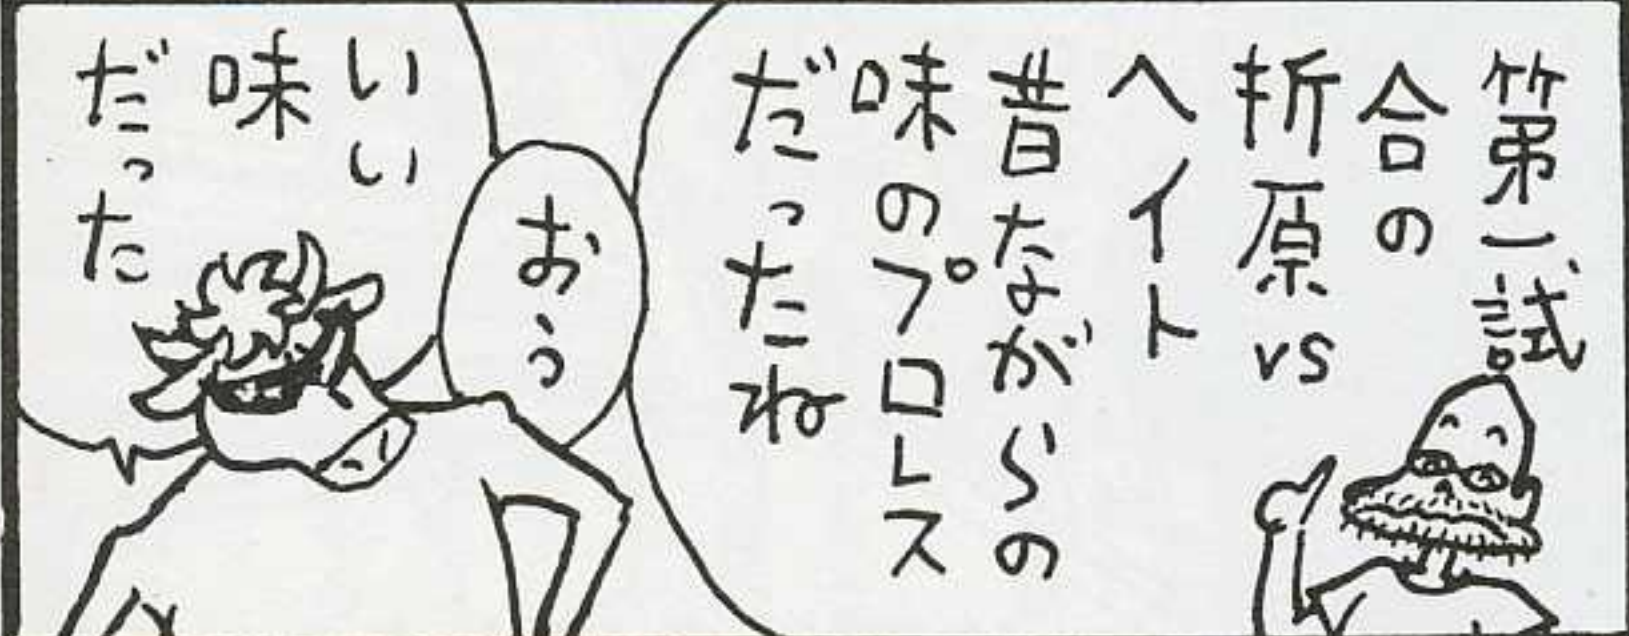 第一試
合の
折原vs
ヘイト
昔ながらの
味のプロレス
だったね
おう
いい
味
だった